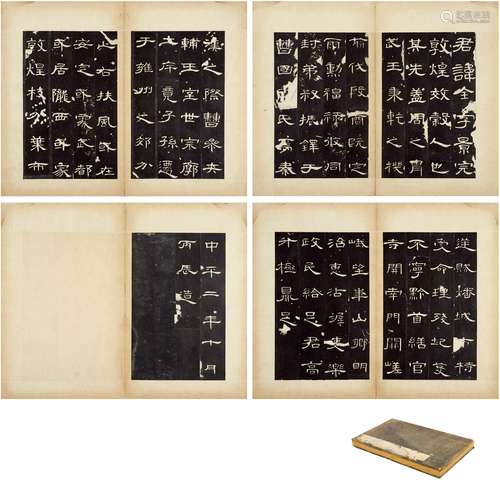 漢之際曹參夾
輔王室世宗廓
土斥竟子孫遷
于雍州之郊分
止右扶風或在
安定或處武都
或居隴西或家
敦煌枝分葉布
君諱全字景完
敦煌效穀人也
其先蓋周之胄
武王秉乾之機
翦伐殷商既定
爾勳福祿攸同
封弟叔振鐸于
曹國因氏焉秦
中平二年十月
丙辰造
逆賊燔城市特
受命理殘圮芟
不寧黔首繕官
寺開南門闕嵯
峨望華山鄉明
治惠沾渥吏樂
政民給足君高
升極鼎足